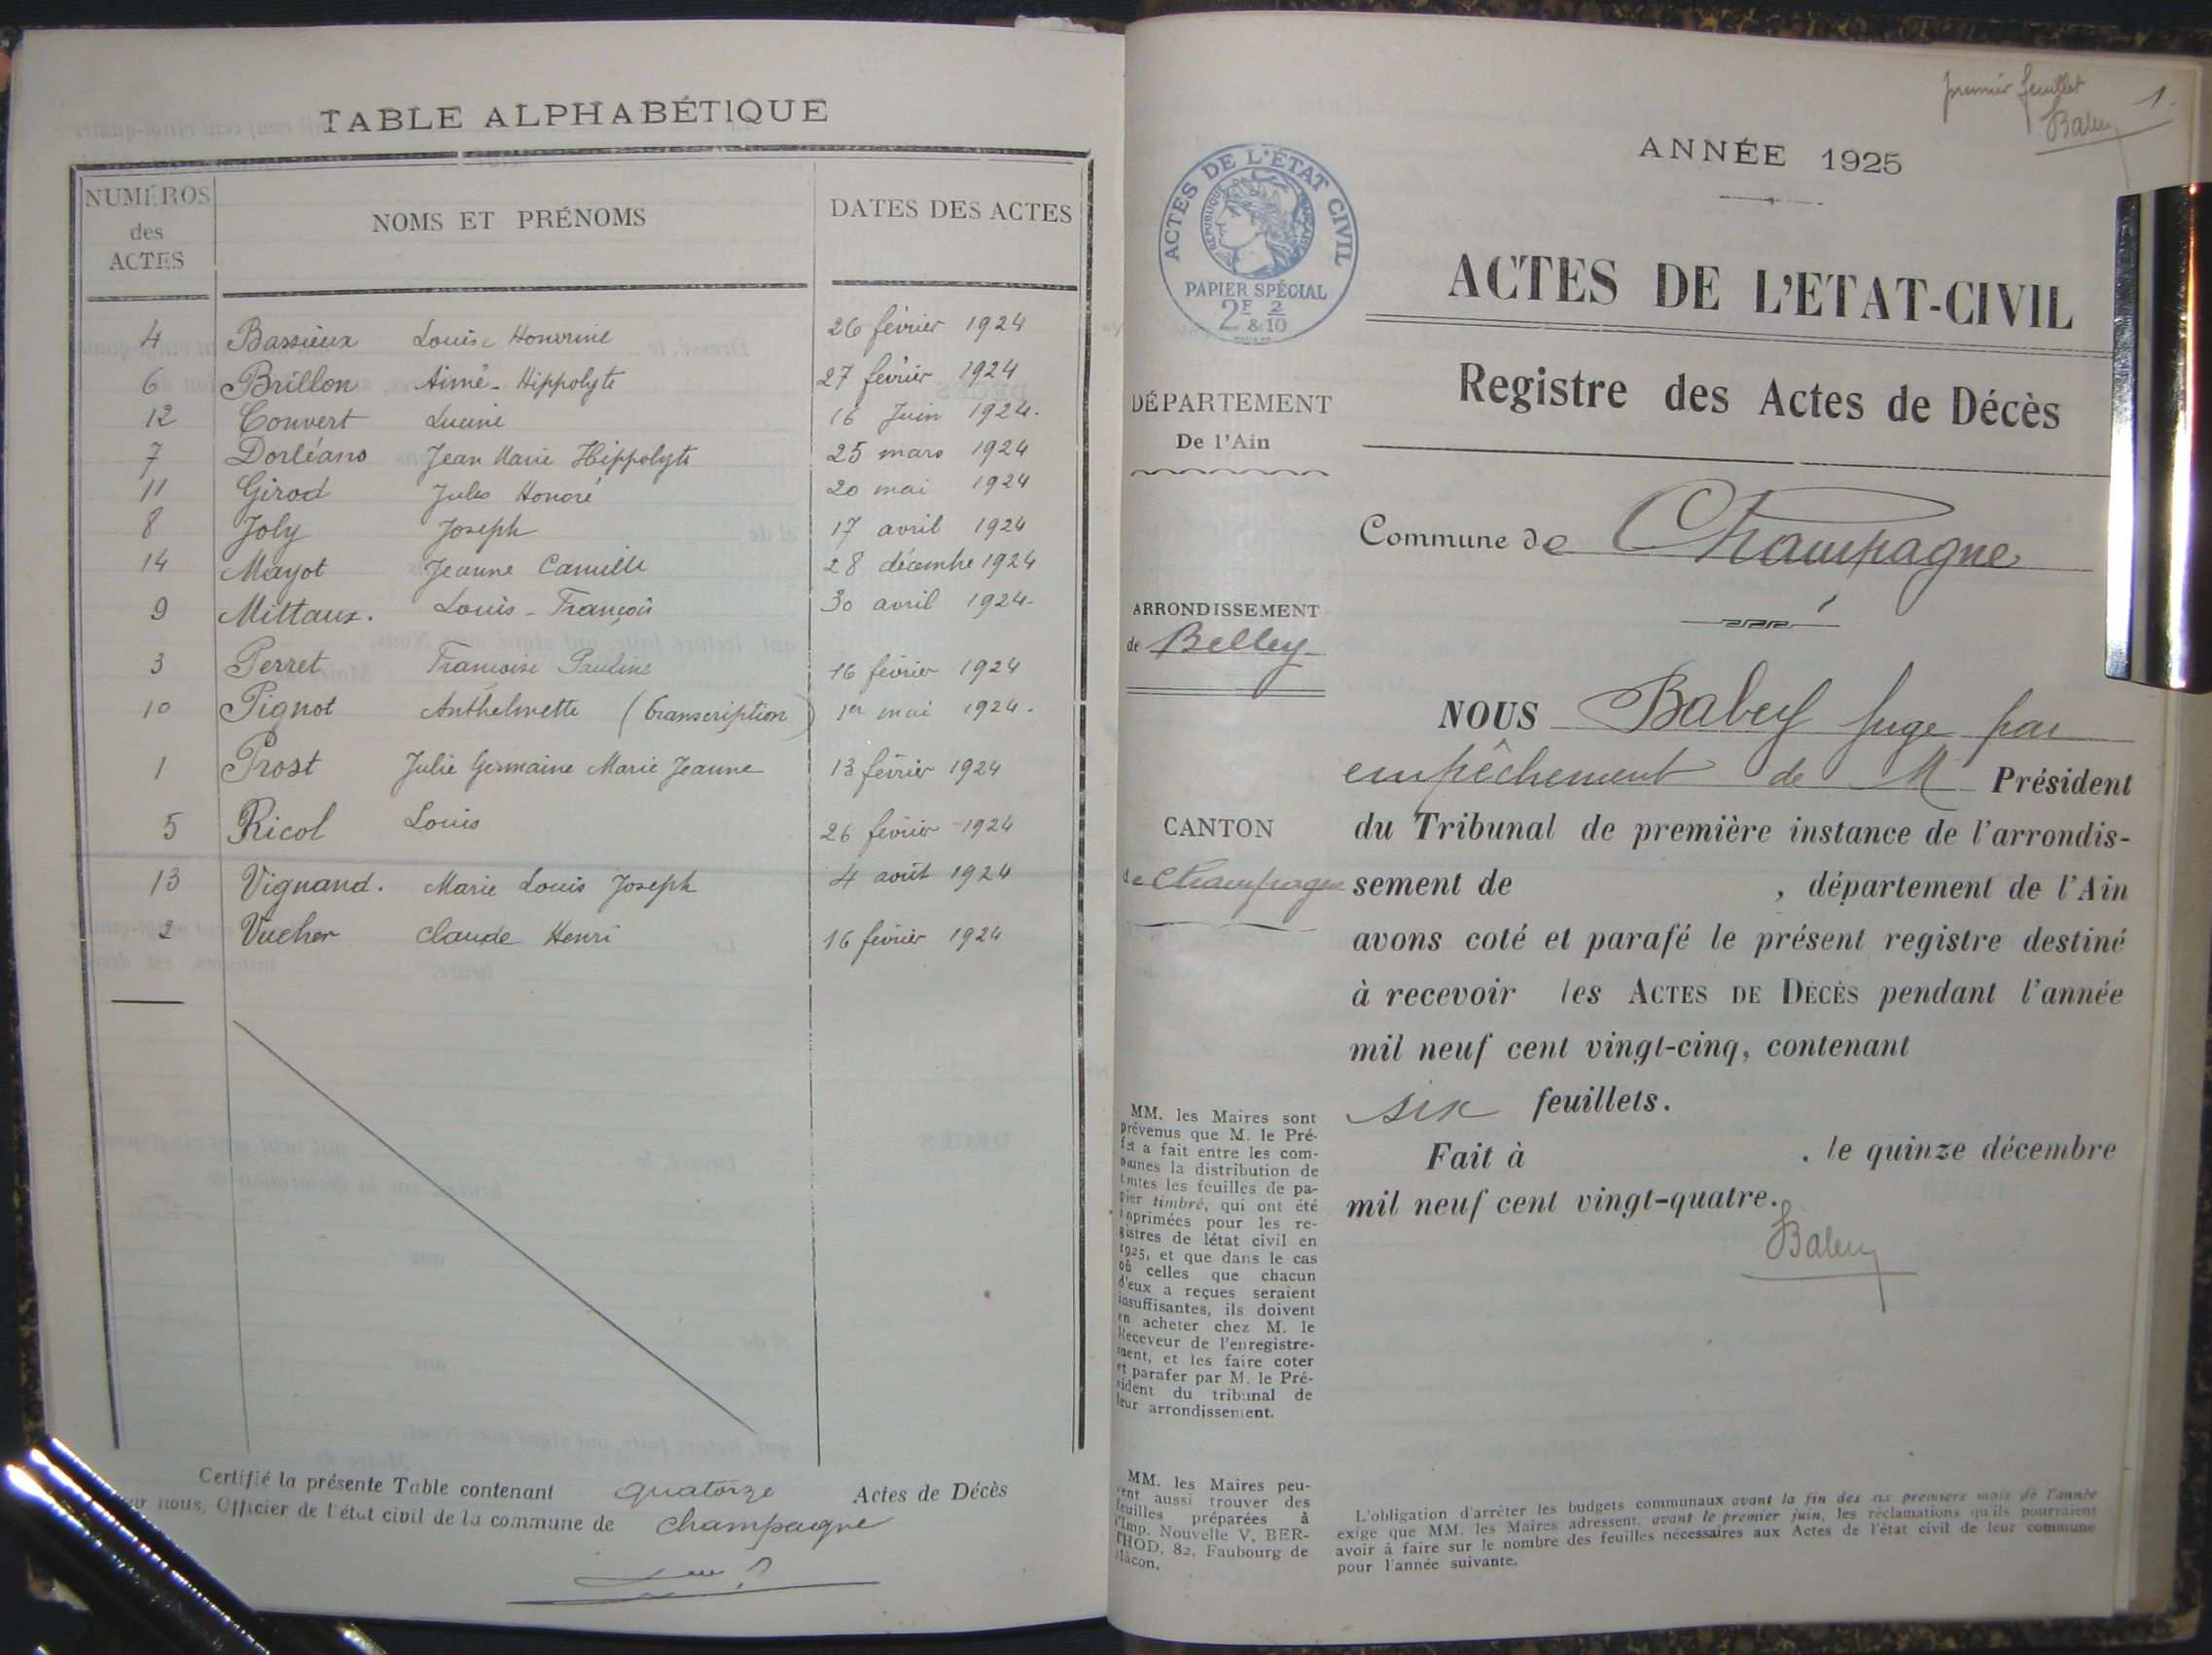 TABLE ALPHABÉTIQUE
NUMÉROS
des
ACTES
NOMS ET PRÉNOMS
DATES DES ACTES
4 Bassieux Louise Honorine 26 février 1924
6 Brillon Aimé-Hippolyte 27 février 1924
12 Convert Lucine 16 Juin 1924.
7 Dorléans Jean Marie Hippolyte 25 mars 1924
11 Girod Jules Honoré 20 mai 1924
8 Joly Joseph 17 avril 1924
14 Mayot Jeanne Camille 28 décembre 1924
9 Mittaux. Louis-François 30 avril 1924-
3 Perret Françoise Pauline 16 février 1924
10 Pignot Anthelmette (transcription) 1er mai 1924.
1 Prost Julie Germaine Marie Jeanne 13 février 1924
5 Ricol Louis 26 février 1924
13 Vignand. Marie Louis Joseph 4 août 1924
2 Vucher Claude Henri 16 février 1924
Certifié la présente Table contenant quatorze Actes de Décès
par nous, Officier de l'état civil de la commune de Champagne
premier feuillet 1.
Babey
ANNÉE 1925
ACTES DE L'ÉTAT CIVIL
RÉPUBLIQUE FRANÇAISE
PAPIER SPÉCIAL
2F & 2/10
ACTES DE L'ETAT-CIVIL
Registre des Actes de Décès
DÉPARTEMENT
De l'Ain
Commune de Champagne
ARRONDISSEMENT
de Belley
CANTON
de Champagne
NOUS Babey Juge par
empêchement de M Président
du Tribunal de première instance de l'arrondis-
sement de , département de l'Ain
avons coté et parafé le présent registre destiné
à recevoir les ACTES DE DÉCÈS pendant l'année
mil neuf cent vingt-cinq, contenant
six feuillets.
Fait à , le quinze décembre
mil neuf cent vingt-quatre.
Babey
MM. les Maires sont
prévenus que M. le Pré-
fet a fait entre les com-
munes la distribution de
toutes les feuilles de pa-
pier timbré, qui ont été
imprimées pour les re-
gistres de létat civil en
1925, et que dans le cas
où celles que chacun
d'eux a reçues seraient
insuffisantes, ils doivent
en acheter chez M. le
Receveur de l'enregistre-
ment, et les faire coter
et parafer par M. le Pré-
sident du tribunal de
leur arrondissement.
MM. les Maires peu-
vent aussi trouver des
feuilles préparées à
l'Imp. Nouvelle V. BER-
THOD, 82, Faubourg de
Mâcon.
L'obligation d'arrêter les budgets communaux avant la fin des six premiers mois de l'année
exige que MM. les Maires adressent, avant le premier juin, les réclamations qu'ils pourraient
avoir à faire sur le nombre des feuilles nécessaires aux Actes de l'état civil de leur commune
pour l'année suivante.